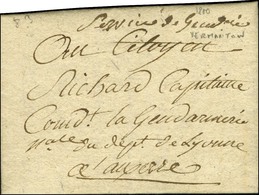 Service de Gendrie
1800
VERMANTON
Au Citoyen
Richard Capitaine
Comdt. la Gendarmerie
Nale du dept. de Lyonne
a auxerre